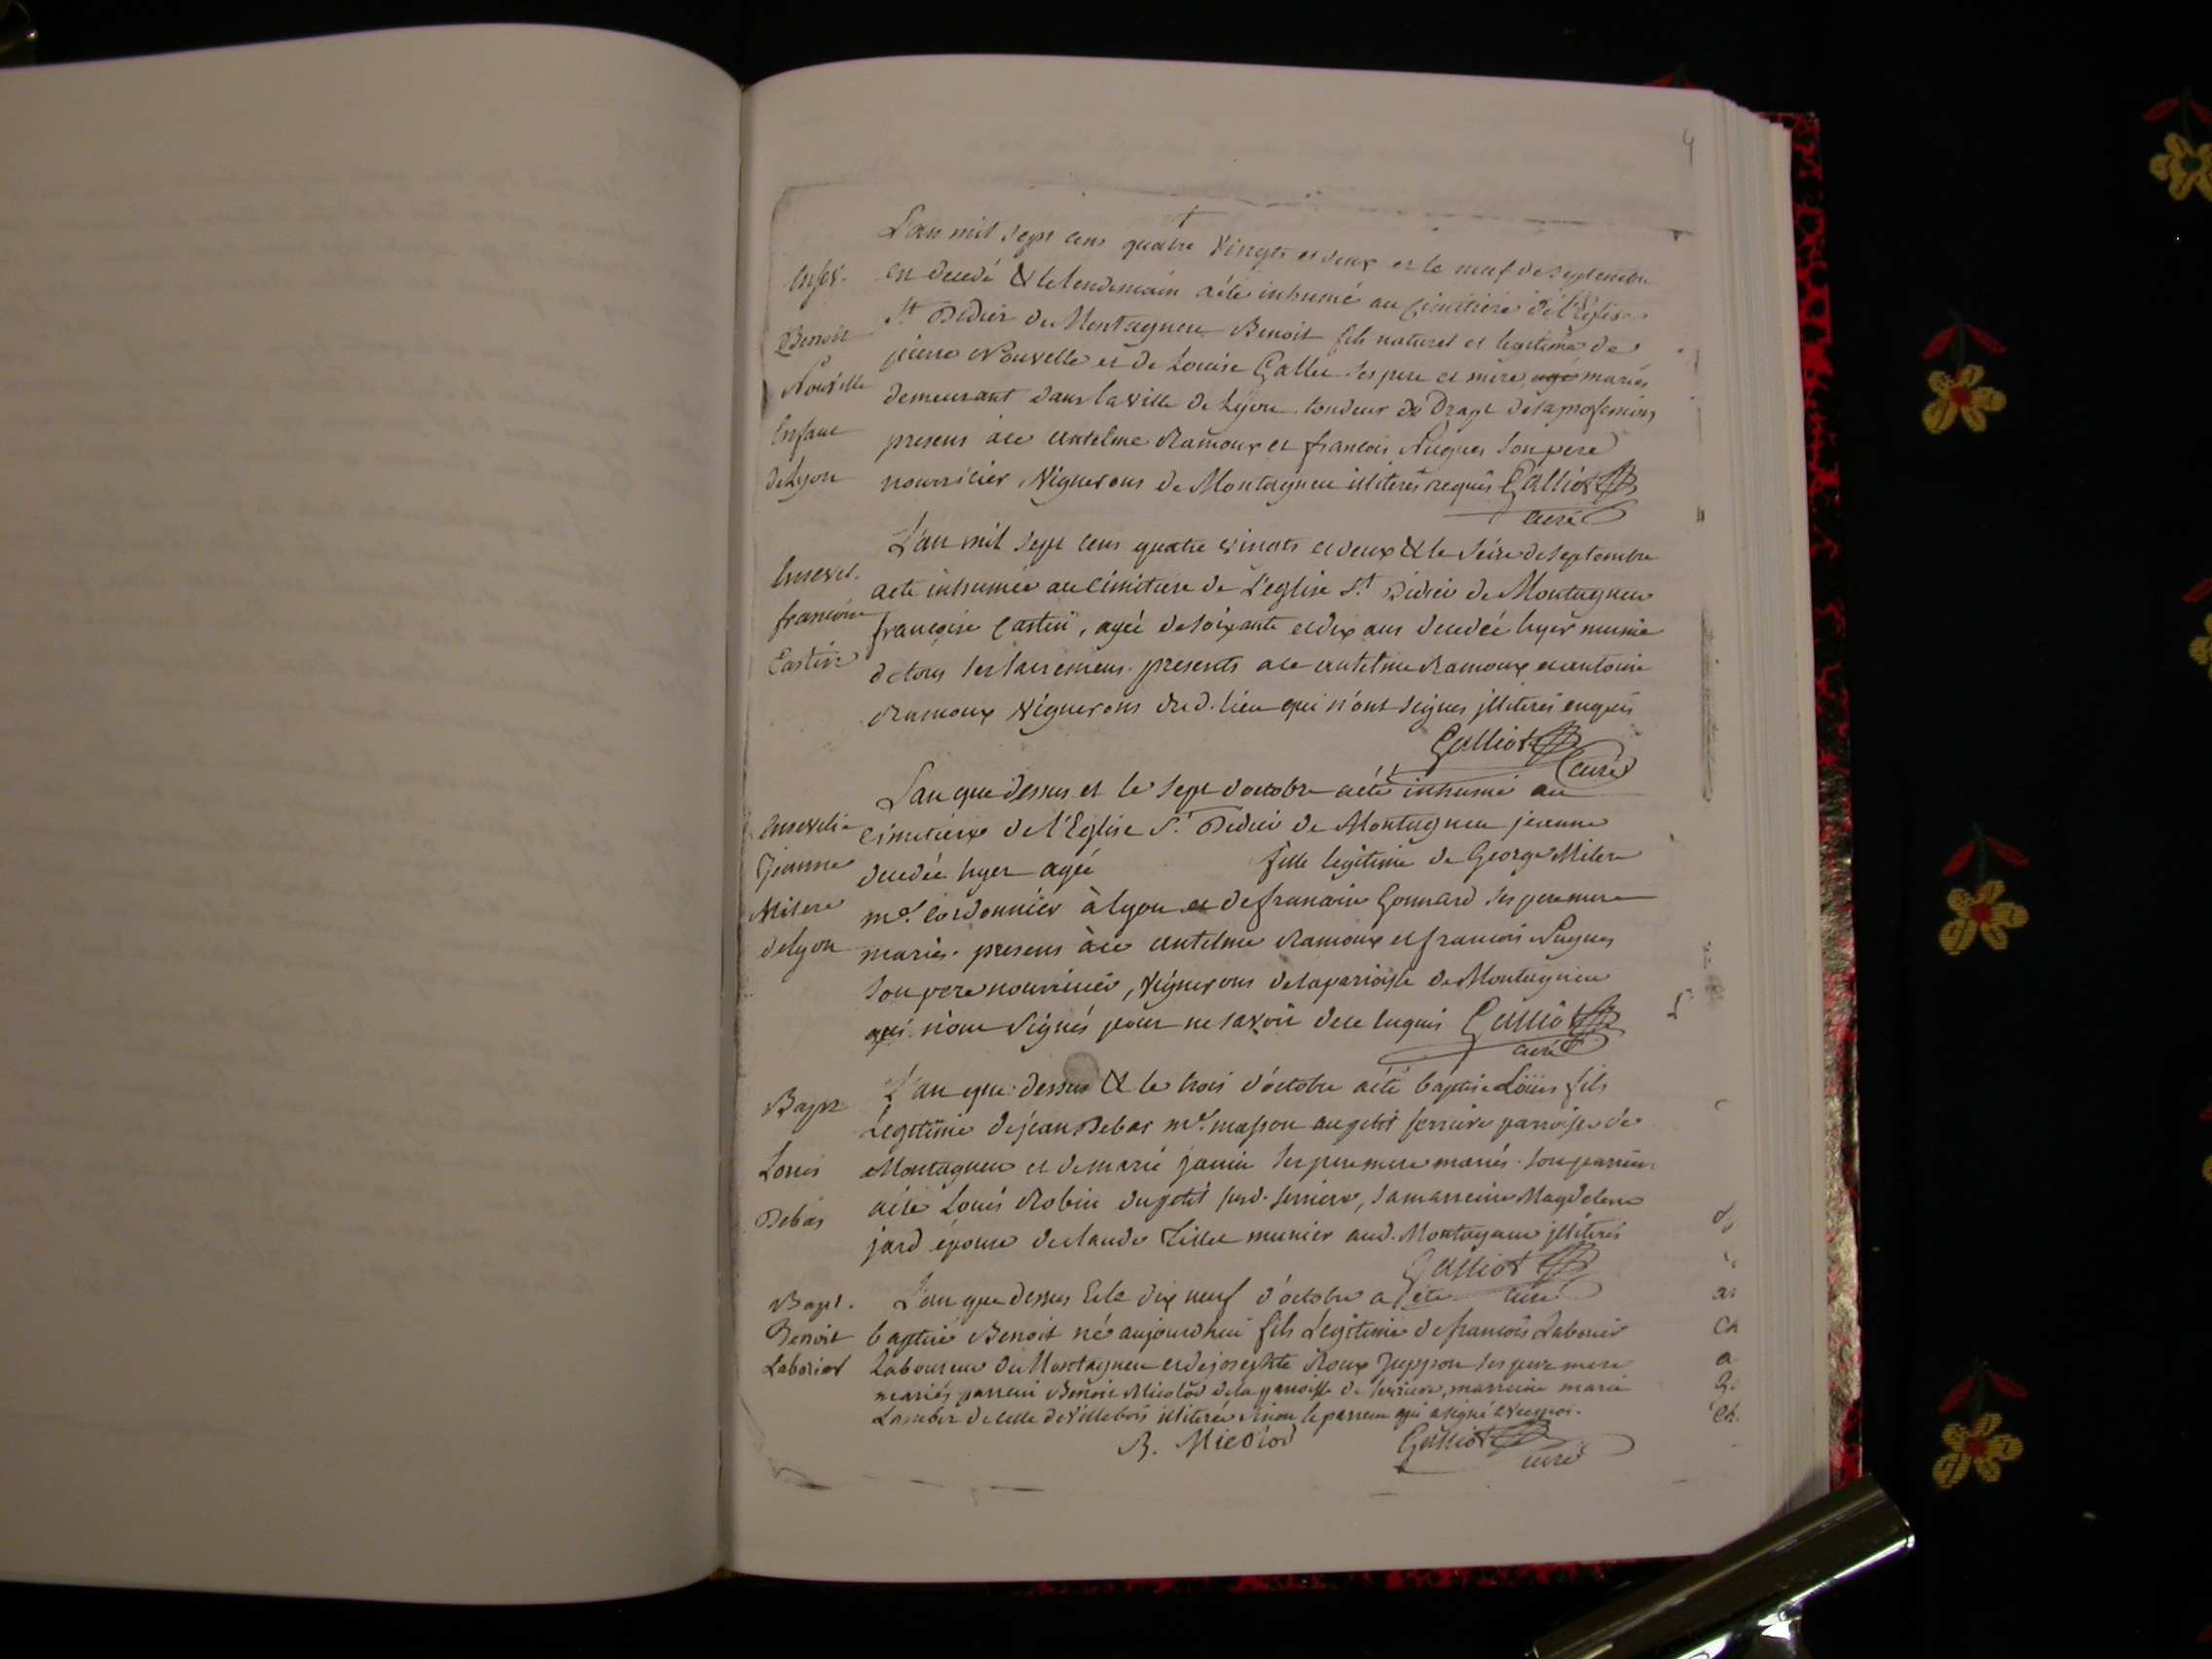 4
L'an mil sept cens quatre vingts et deux et le neuf de septembre
est decedé & le lendemain a été inhumé au cimitiere de l'Eglise
St Didier de Montagneu Benoit fils naturel et legitime de
pierre Nouvelle et de Louise Gallet ses pere et mere mariés
demeurant dans la ville de Lyon tondeur de Drapt de sa profession
presens a ce antelme Ramoux et francois Nugues son pere
nourricier, Vignerons de Montagneu illiterés requis Galliot
curé
Benoit
Nouvelle
Enfant
de Lyon
L'an mil sept cens quatre vingts et deux & le seize de septembre
a ete inhumée au cimitiere de L'eglise St Didier de Montagneu
françoise Castin, agée de soixante et dix ans decedée hyer munie
de tous les sacremens presents a ce antelme Ramoux et antoine
Ramoux Vignerons dud. lieu qui n'ont signes jlliterés enquis
Galliot
curé
Ensevel.
francoise
Castin
L'an que dessus et le sept d'octobre a été inhumé au
cimitiere de l'Eglise St Didier de Montagneu jeanne
decedée hyer agée fille legitime de George Milere
md. Cordonnier à lyon et de francoise Gonnard ses pere mere
mariés. presens à ce antelme Ramoux et francois Nugues
son pere nourricier, Vignerons de la paroisse de Montagneu
qui n'ont signés pour ne savoir de ce enquis Galliot
curé
Jeanne
Milere
de lyon
L'an que dessus & le trois d'octobre a été baptisé Loüis fils
Légitime de jean Debas me. masson au petit serriere parroisse de
Montagneu et de marie janin ses pere mere mariés. son parrein
a été Louis Robin du petit sud. serriere, sa marreine Magdelene
jard épouse de claude Tillet munier aud. Montagneu jlliterés
Galliot
curé
Bapt
Louis
Debas
L'an que dessus & le dix neuf d'octobre a été
baptisé Benoit né aujourdhui fils Légitime de francois Laborier
Laboureur de Montagneu et de josephte Roux Juppon ses pere mere
mariés parrein Benoit Micolod de la parroisse de serriere, marreine marie
Lambert de celle de Villebois illiterée sinon le parrein qui a signé avec moi.
B. Micolod Galliot
curé
Bapt.
Benoit
Laborier